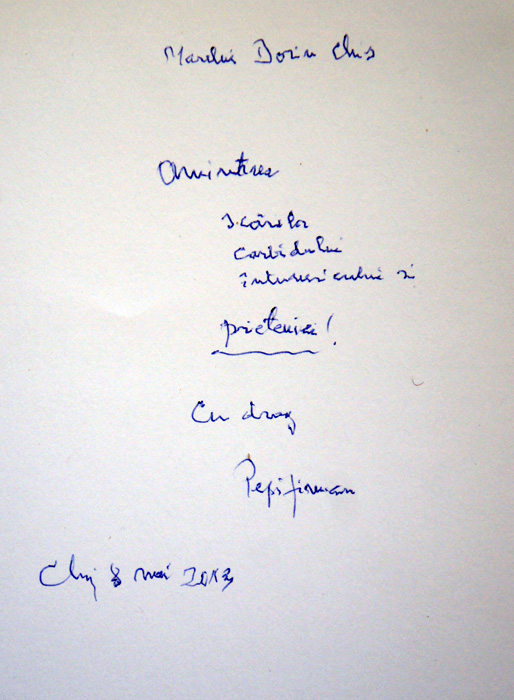 Marelui Dorin Chis
Amintirea
scărilor
carbidului
întunericului și
prieteniei!
Cu drag
Cluj 8 mai 2013